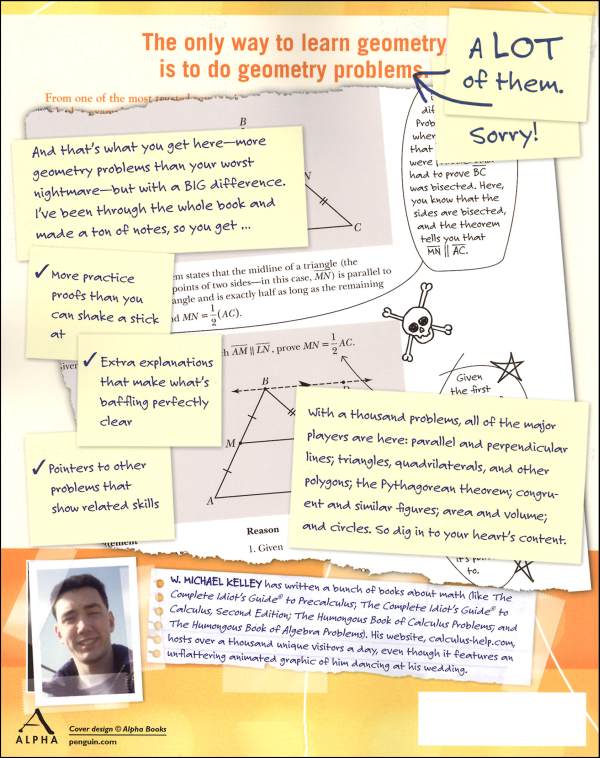 The only way to learn geometry
is to do geometry problems.
A LOT
of them.
Sorry!
From one of the most
B
N
C
And that's what you get here—more
geometry problems than your worst
nightmare—but with a BIG difference.
I've been through the whole book and
made a ton of notes, so you get ...
dif
Prob
wher
that
were
had to prove BC
was bisected. Here,
you know that the
sides are bisected,
and the theorem
tells you that
MN || AC.
em states that the midline of a triangle (the
points of two sides—in this case, MN) is parallel to
angle and is exactly half as long as the remaining
d MN = 1/2 (AC).
✓ More practice
proofs than you
can shake a stick
at
h AM || LN, prove MN = 1/2 AC.
✓ Extra explanations
that make what's
baffling perfectly
clear
B
M
A
Given
the first
✓ Pointers to other
problems that
show related skills
With a thousand problems, all of the major
players are here: parallel and perpendicular
lines; triangles, quadrilaterals, and other
polygons; the Pythagorean theorem; congru-
ent and similar figures; area and volume;
and circles. So dig in to your heart's content.
Reason
1. Given
to.
W. MICHAEL KELLEY has written a bunch of books about math (like The
Complete Idiot's Guide® to Precalculus; The Complete Idiot's Guide® to
Calculus, Second Edition; The Humongous Book of Calculus Problems; and
The Humongous Book of Algebra Problems). His website, calculus-help.com,
hosts over a thousand unique visitors a day, even though it features an
unflattering animated graphic of him dancing at his wedding.
A
ALPHA
Cover design © Alpha Books
penguin.com